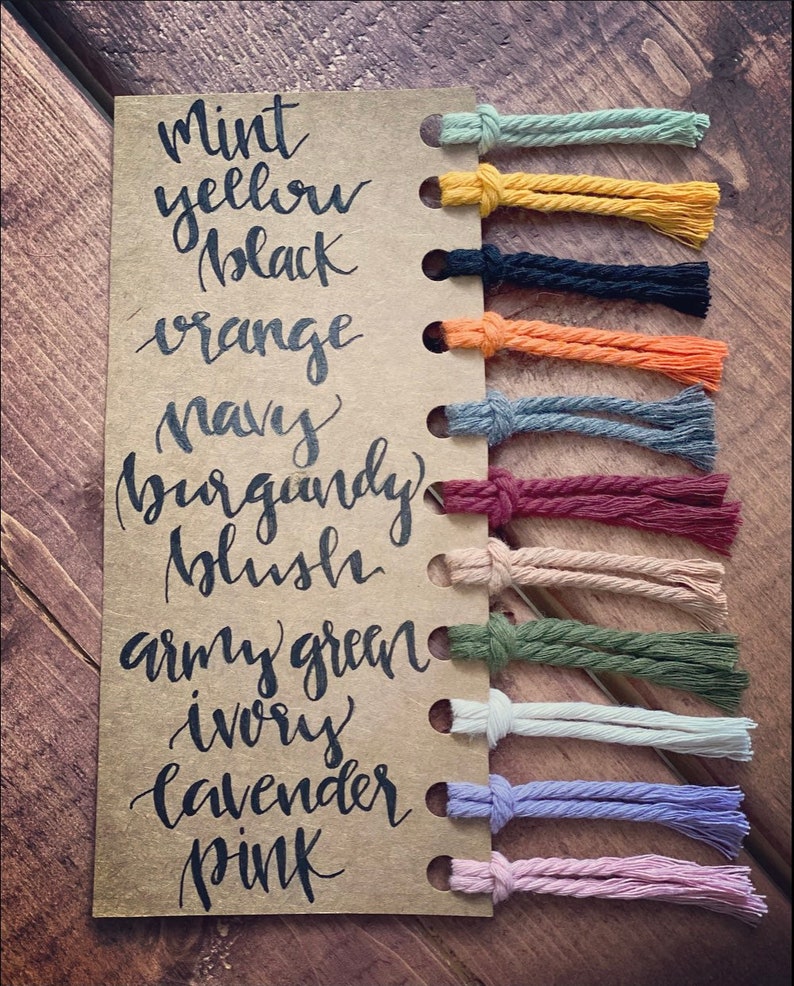 mint
yellow
black
orange
navy
burgundy
blush
army green
ivory
lavender
pink